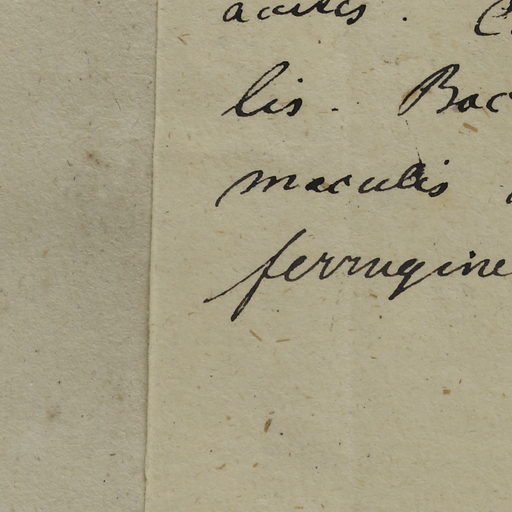 acutis.
lis. Bac
maculis
ferrugine